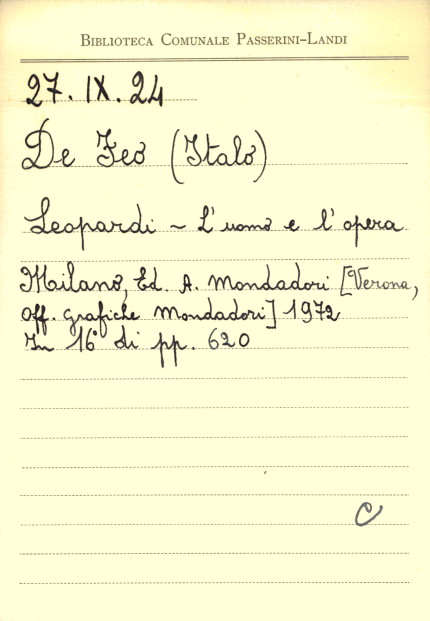 Biblioteca Comunale Passerini-Landi
27. IX. 24
De Feo (Italo)
Leopardi ~ L'uomo e l'opera
Milano, Ed. A. Mondadori [Verona,
Off. grafiche Mondadori] 1972
In 16° di pp. 620
C